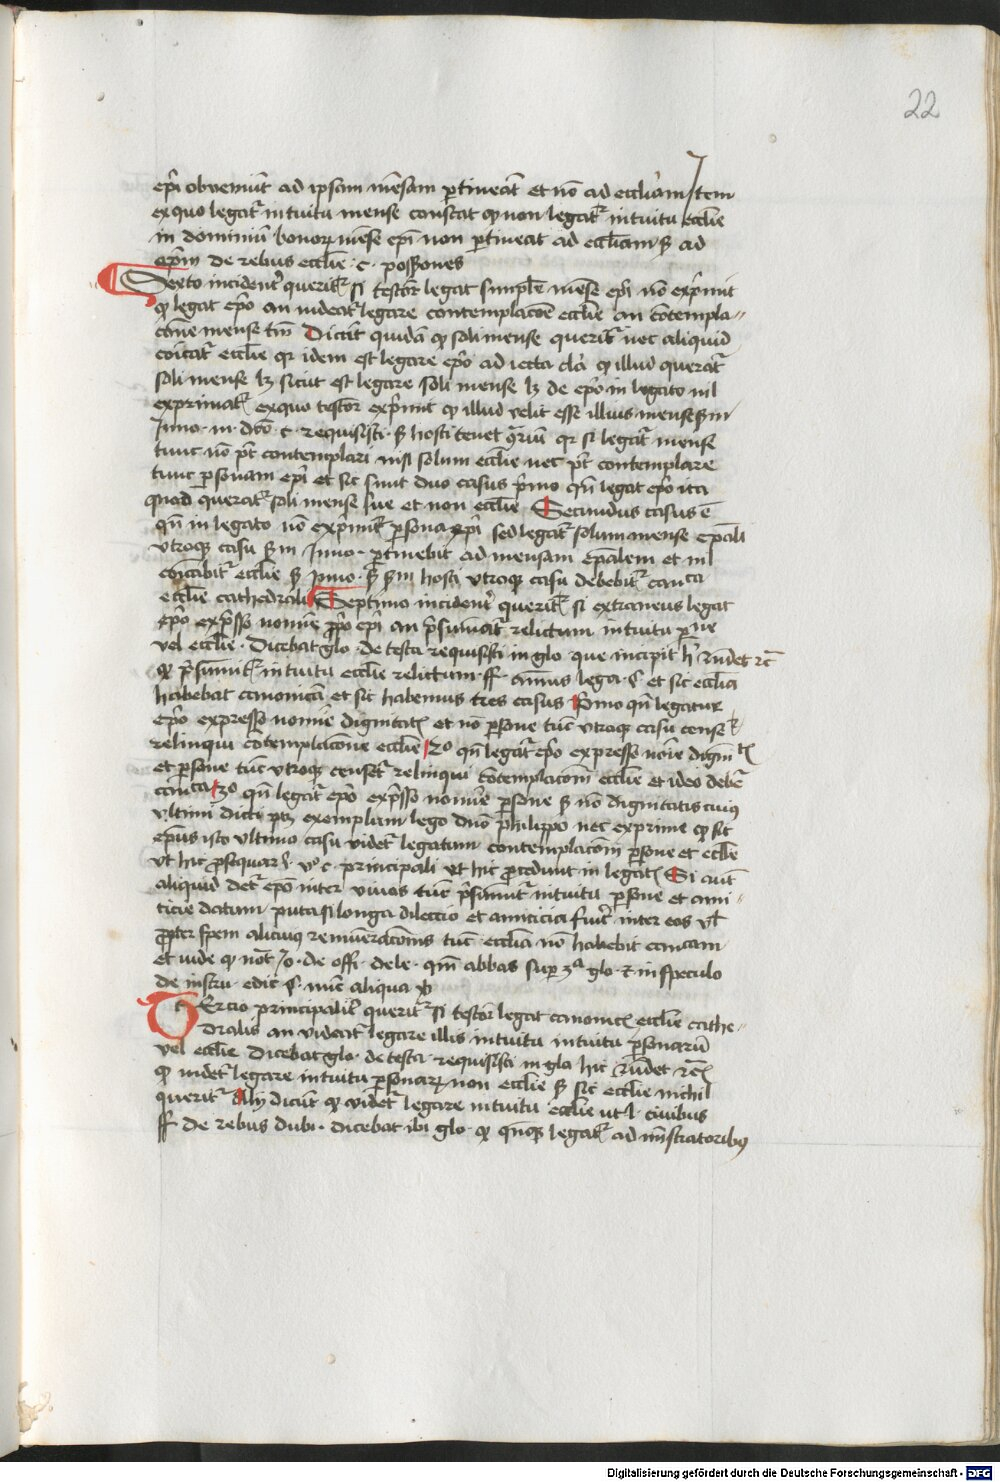 22
ep̄i obveniūt ad ipsam mēsam ꝑtineāt et nō ad ecclīam Item
ex quo legat᷑ intuitu mense constat ꝙ non legat᷑ intuitu ecclīe
in dominiū bonoꝝ mēse ep̄i non ꝑtineat ad ecclīam sꝫ ad
ep̄m de rebus ecclīe · c · possōnes
Sexto incident᷑ querit᷑ si testor legat simplr̄ mēse ep̄i nō exp̄mit
ꝙ legat ep̄o an videat᷑ legare contemplacōe ecclīe an cōtempla-
cōne mense tm̄ Dicūt quidā ꝙ soli mense querit᷑ nec aliquid
cōicat᷑ ecclīe qr idem est legare ep̄o adiecta cla᷑ ꝙ illud querat᷑
soli mense lꝫ sicut est legare soli mense lꝫ de ep̄o in legato nil
exprimat᷑ ex quo testor exp̄mit ꝙ illud velit esse illius mense sm̄
Inno · in dc̄o · c · requisisti · sꝫ hosti tenet 9ͬriū qr si legat᷑ mense
tunc nō pt̄ contemplari nisi solum ecclīe nec pt̄ contemplare
tunc ꝑsonam ep̄i et sic sunt duo casus p̄mo qn̄ legat ep̄o ita
quod querat᷑ soli mense sue et non ecclīe Secundus casus ē
qn̄ in legato nō exp̄mit᷑ ꝑsona ep̄i sed legat᷑ solum mense ep̄ali
vtroqꝫ casu sm̄ Inno · ꝑtinebit ad mensam ep̄alem et nil
cōicabit᷑ ecclīe sm̄ Inno · sꝫ sm̄ hosti vtroqꝫ casu debebit᷑ canͨᵃ
ecclīe cathedrali Septimo incident᷑ querit᷑ si extraneus legat
ep̄o exp̄sso nomīe ꝓpo ep̄i an p̄sumat᷑ relictum intuitu ꝑͫne
vel ecclīe · Dicebat glo · de testa requisisti in glo que incipit h᷑ rūdet ⁊c̄
ꝙ p̄sumit᷑ intuitu ecclīe relictum · ff · annuus lega · § et sic ecclīa
habebat canonicā et sic habemus tres casus Primo qn̄ legatur
ep̄o expresso nomīe dignitat᷑ et nō ꝑsone tūc vtroqꝫ casu censet᷑
relinqui cōtemplacōne ecclīe 2° qn̄ legat᷑ ep̄o expresse noīe dignitᷤ
et ꝑsone tūc vtroqꝫ censet᷑ relinqui cōtemplacōm ecclīe et ideo debet᷑
canͨᵃ 3° qn̄ legat᷑ ep̄o exp̄sso nomīe ꝑsone sꝫ nō dignitatis cuius
vltimi dicti ptꝫ exemplum lego dn̄o philippo nec exprime ꝙ sit
ep̄us isto vltimo casu videt᷑ legatum contemplacōm ꝑsone et ecclīe
vt hic ꝓsequar § v° c · principali vt hic ꝓcedunt in legat᷑ Si aūt
aliquid det᷑ ep̄o inter vivos tūc p̄sumit᷑ intuitu ꝑsone et ami-
ticie datum puta si longa dileccio et amicicia fuit᷑ inter eos vl᷑
ꝓpter spem alicuius remūeracōnis tūc ecclīa nō habebit canͨam
et vide ꝙ not᷑ Io · de offi · dele · qm̄ abbas sup 3ᵃ glo · ⁊ in speculo
de instru · edic § · nūc aliqua v̄
Tercio principalit᷑ querit᷑ si testor legat canonic᷑ ecclīe cathe-
dralis an videat᷑ legare illis intuitu intuitu ꝑsonarū
vel ecclīe Dicebat glo · de testa · requisisti in glo hic rūdet ⁊c᷑
ꝙ videt᷑ legare intuitu ꝑsonaꝝ non ecclīe sꝫ sic ecclīe nichil
querit᷑ Alij dicūt ꝙ videt᷑ legare intuitu ecclīe ut l · civibus
ff de rebus dubi · dicebat ibi glo · ꝙ qn̄qꝫ legat᷑ administratoribus
Digitalisierung gefördert durch die Deutsche Forschungsgemeinschaft - DFG